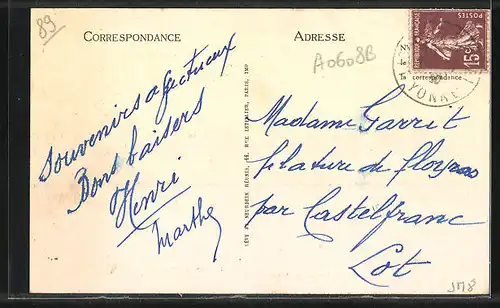 89
CORRESPONDANCE
ADRESSE
A0608B
RÉPUBLIQUE FRANÇAISE
POSTES
15c
correspondance
YONNE
Souvenirs affectueux
Bons baisers
Henri
Marthe
LÉVY ET NEURDEIN RÉUNIS, 44, RUE LETELLIER, PARIS, IMP
Madame Garrit
filature de
par Castelfranc
Lot
JM8